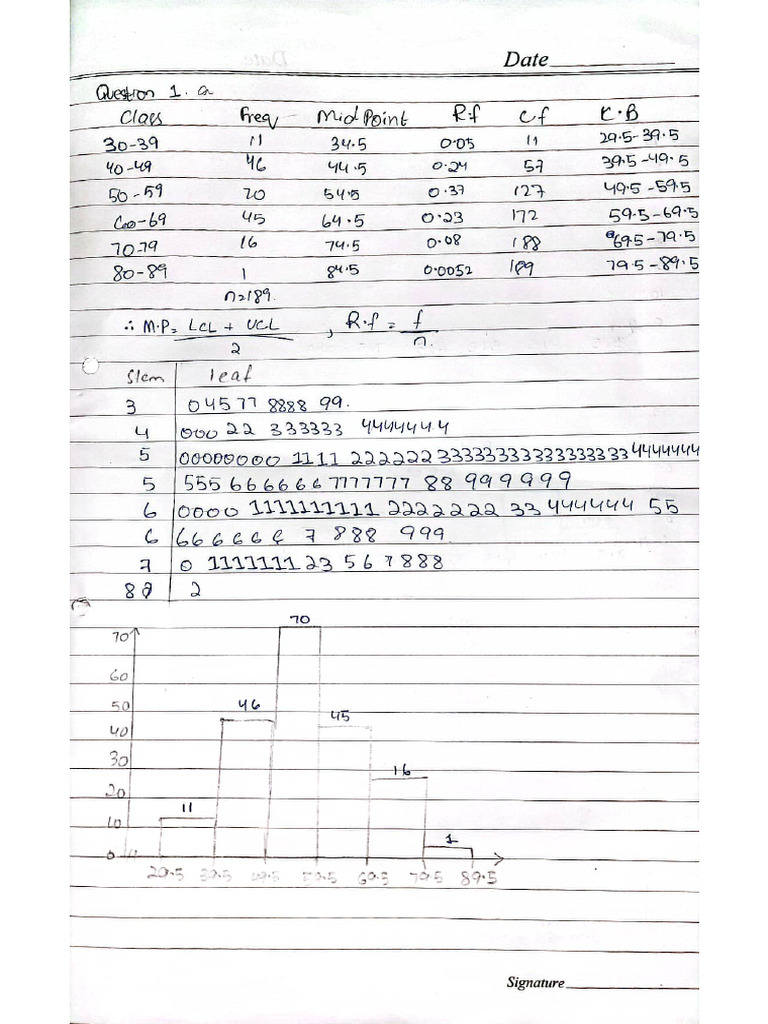 Date
Question 1. a
Class Freq Mid Point R.f Cf C.B
30-39 11 34.5 0.05 11 29.5-39.5
40-49 46 44.5 0.24 57 39.5-49.5
50-59 70 54.5 0.37 127 49.5-59.5
60-69 45 64.5 0.23 172 59.5-69.5
70-79 16 74.5 0.08 188 69.5-79.5
80-89 1 84.5 0.0052 189 79.5-89.5
n=189.
∴ M.P= LCL + UCL / 2 , R.f = f / n.
Stem leaf
3 0 4 5 77 8888 99.
4 000 22 333333 4444444
5 00000000 1111 222222 33333333333333333 4444444
5 555 666666 7777777 88 999999
6 0000 1111111111 2222222 33 444444 55
6 666666 7 888 999
7 0 1111111 23 5 6 7 888
8 2
70
70
60
50 46
45
40
30
16
20
11
10
1
0
29.5 39.5 49.5 59.5 69.5 79.5 89.5
Signature